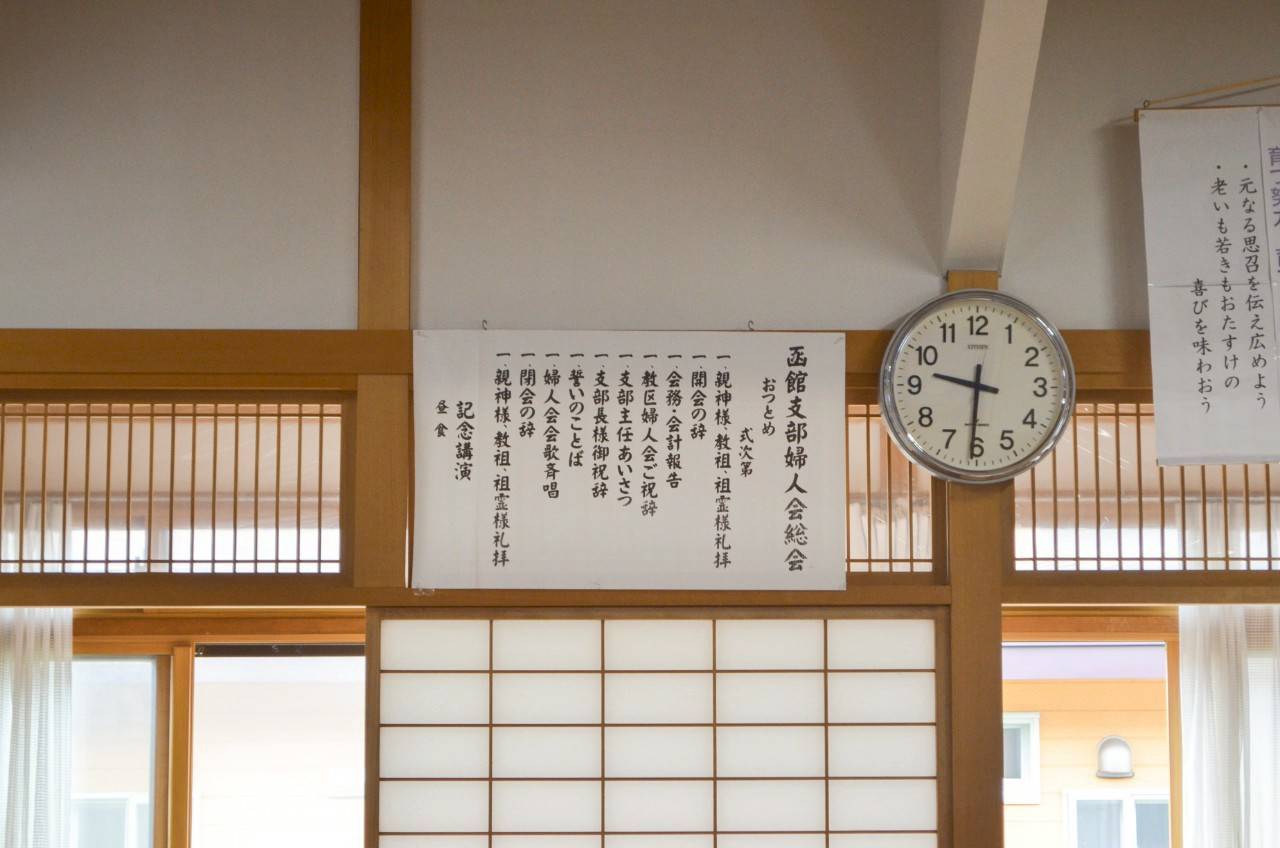 函館支部婦人会総会
おつとめ
式次第
一、親神様、教祖、祖霊様礼拝
一、開会の辞
一、会務・会計報告
一、教区婦人会ご祝辞
一、支部主任あいさつ
一、支部長様御祝辞
一、誓いのことば
一、婦人会会歌斉唱
一、閉会の辞
一、親神様、教祖、祖霊様礼拝
記念講演
昼食
12
1
2
3
4
5
6
7
8
9
10
11
CITIZEN
・元なる思召を伝え広めよう
・老いも若きもおたすけの
喜びを味わおう